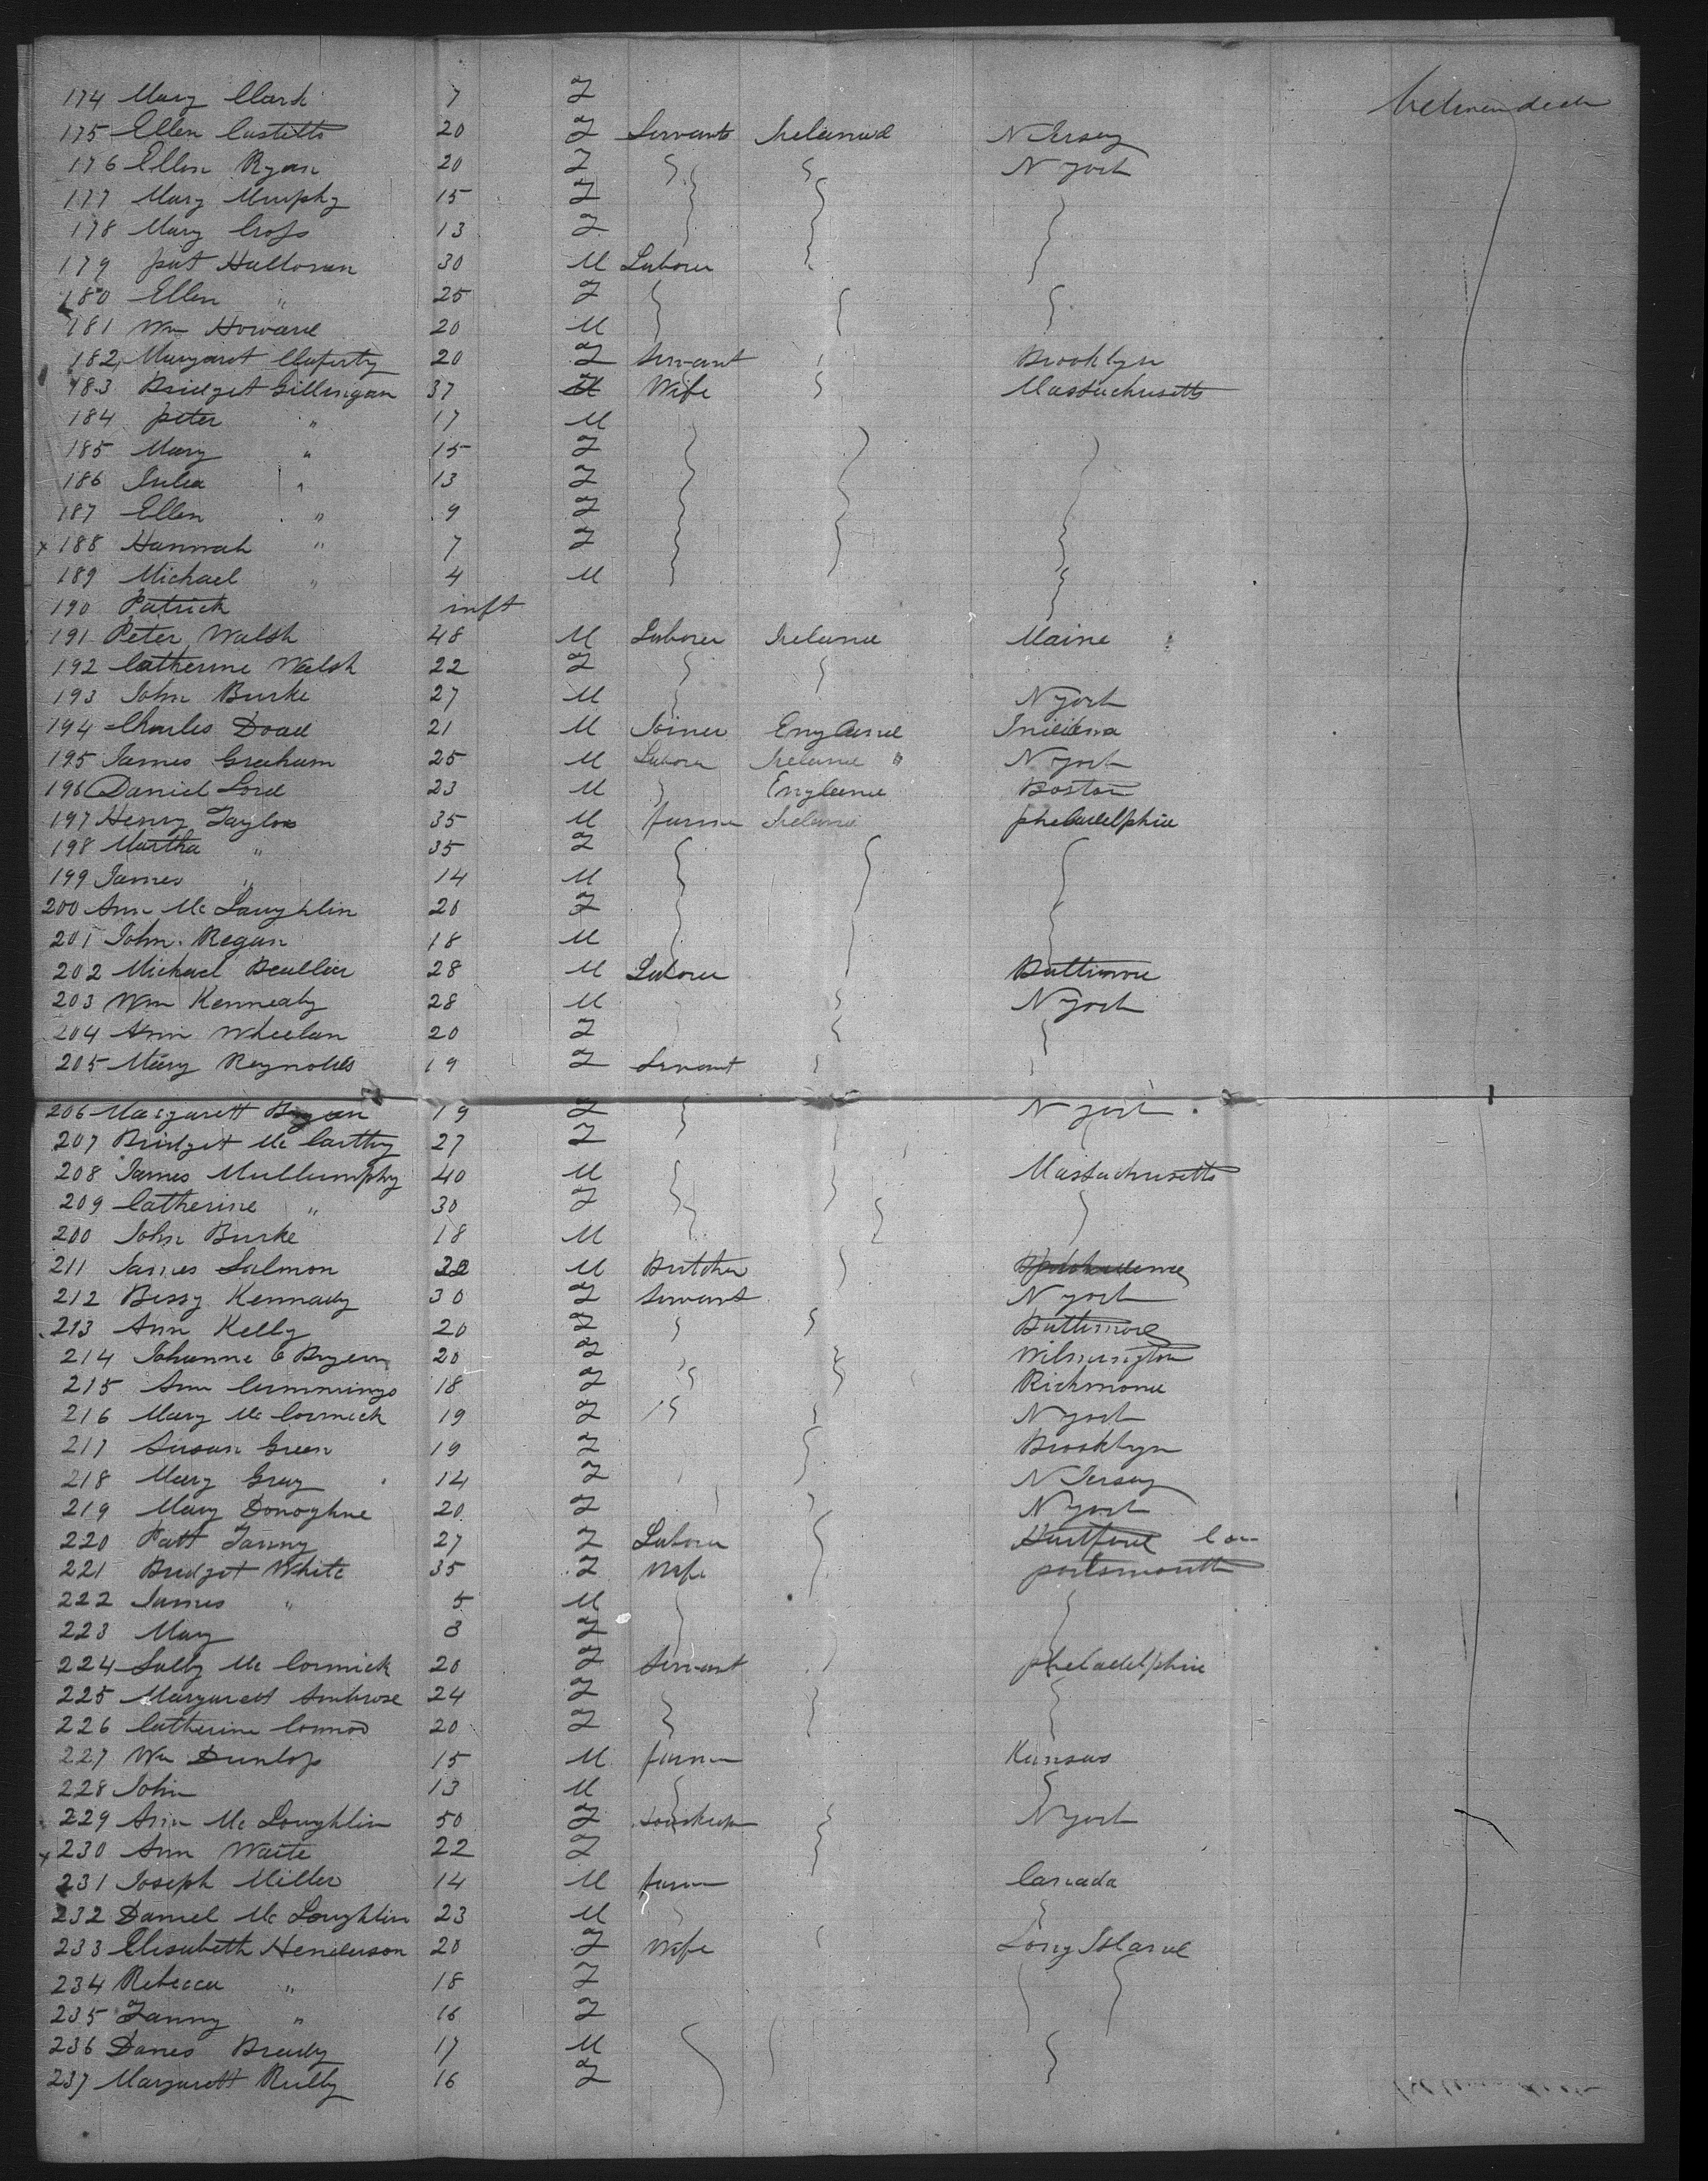 174 Mary Clark 7 F between deck
175 Ellen Costello 20 F Servants Ireland N Jersey
176 Ellen Ryan 20 F N York
177 Mary Murphy 15 F
178 Mary Cross 13 F
179 Pat Halloran 30 M Laborer
180 Ellen " 25 F
181 Wm Howard 20 M
182 Margaret 20 F Servant Brooklyn
183 Bridget Gillingan 37 Wife Massachusetts
184 Peter " 17 M
185 Mary " 15 F
186 Julia " 13 F
187 Ellen " 9 F
x 188 Hannah " 7 F
189 Michael " 4 M
190 Patrick inft
191 Peter Walsh 48 M Laborer Ireland Maine
192 Catherine Walsh 22 F
193 John Burke 27 M N York
194 Charles Doad 21 M Joiner England Indiana
195 James Graham 25 M Labore Ireland " N York
196 Daniel Lord 23 M England Boston
197 Henry Taylor 35 M farmer Ireland pheladelphia
198 Martha " 35 F
199 James " 14 M
200 Ann Mc Laughlin 20 F
201 John Regan 18 M
202 Michael 28 M Laborer Baltimore
203 Wm Kennealy 28 M N York
204 Ann Wheelan 20 F
205 Mary Reynolds 19 F Servant
206 Margarett Bryan 19 F N York
207 Bridget Mc Carthy 27 F
208 James Mullumphy 40 M Massachusetts
209 Catherine " 30 F
200 John Burke 18 M
211 James Salmon 22 M Butcher
212 Bessy Kennady 30 F Servant N York
213 Ann Kelly 20 F Baltimore
214 Johanna O Bryern 20 F Wilmington
215 Ann Cummings 18 F Richmond
216 Mary Mc Cormick 19 F N York
217 Susan Green 19 F Brooklyn
218 Mary Gray 14 F N Jersey
219 Mary Donoghue 20 F N York
220 Patt Fanny 27 F Laborer Hartford Con
221 Bridget White 35 F Wife portsmouth
222 James " 5 M
223 Mary 3 F
224 Sally Mc Cormick 20 F Servant pheladelphia
225 Margarett Ambrose 24 F
226 Catherine Connor 20 F
227 Wm Dunlop 15 M farmer Kansas
228 John 13 M
229 Ann Mc Loughlin 50 F N York
x 230 Ann Waite 22 F
231 Joseph Miller 14 M farmer Canada
232 Daniel Mc Loughlin 23 M
233 Elisabeth Henderson 20 F Wife Long Island
234 Rebecca " 18 F
235 Fanny " 16 F
236 James Brady 17 M
237 Margarett Reilly 16 F